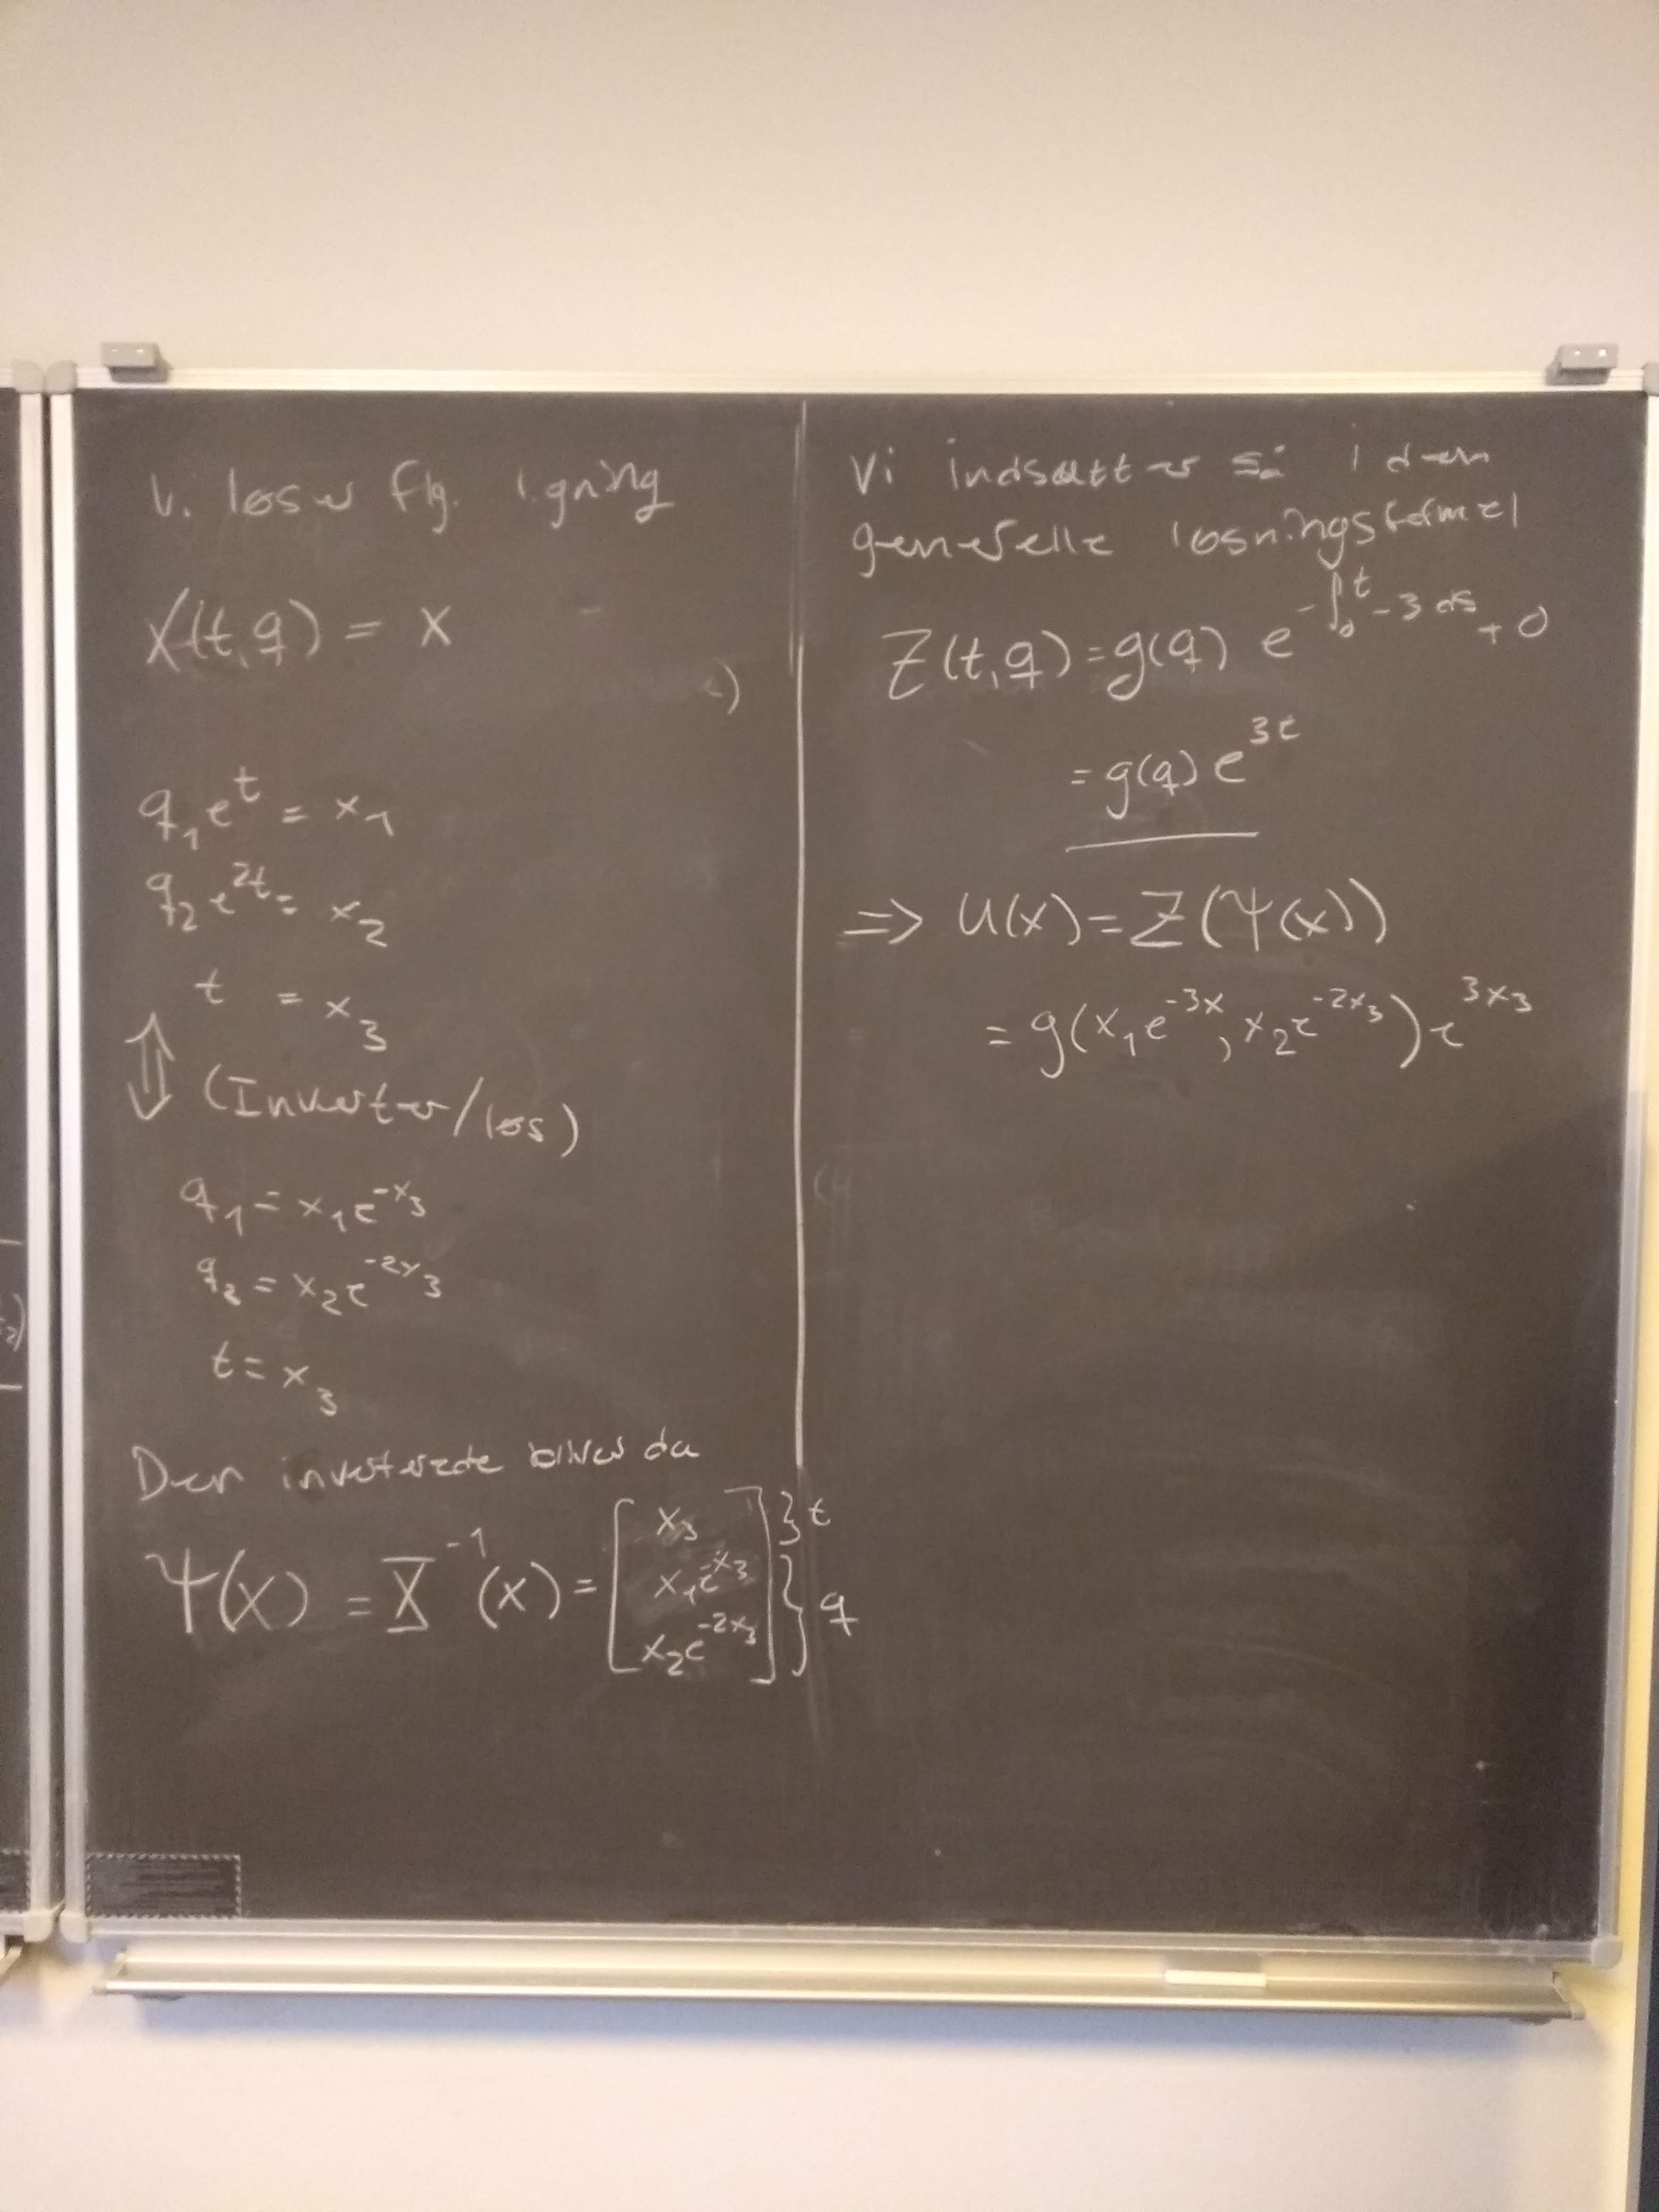 Vi løser flg. ligning
X(t,q) = x
q₁e^t = x₁
q₂e^{2t} = x₂
t = x₃
⇕ (Inverter/løs)
q₁ = x₁e^{-x₃}
q₂ = x₂e^{-2x₃}
t = x₃
Den inverterede bliver da
Ψ(x) = X^{-1}(x) = [x₃
x₁e^{-x₃}
x₂e^{-2x₃}] } t } q
Vi indsætter så i den
generelle løsningsformel
Z(t,q) = g(q) e^{-∫₀^t -3 ds} + 0
= g(q) e^{3t}
=> u(x) = Z(Ψ(x))
= g(x₁e^{-3x}, x₂e^{-2x₃}) e^{3x₃}